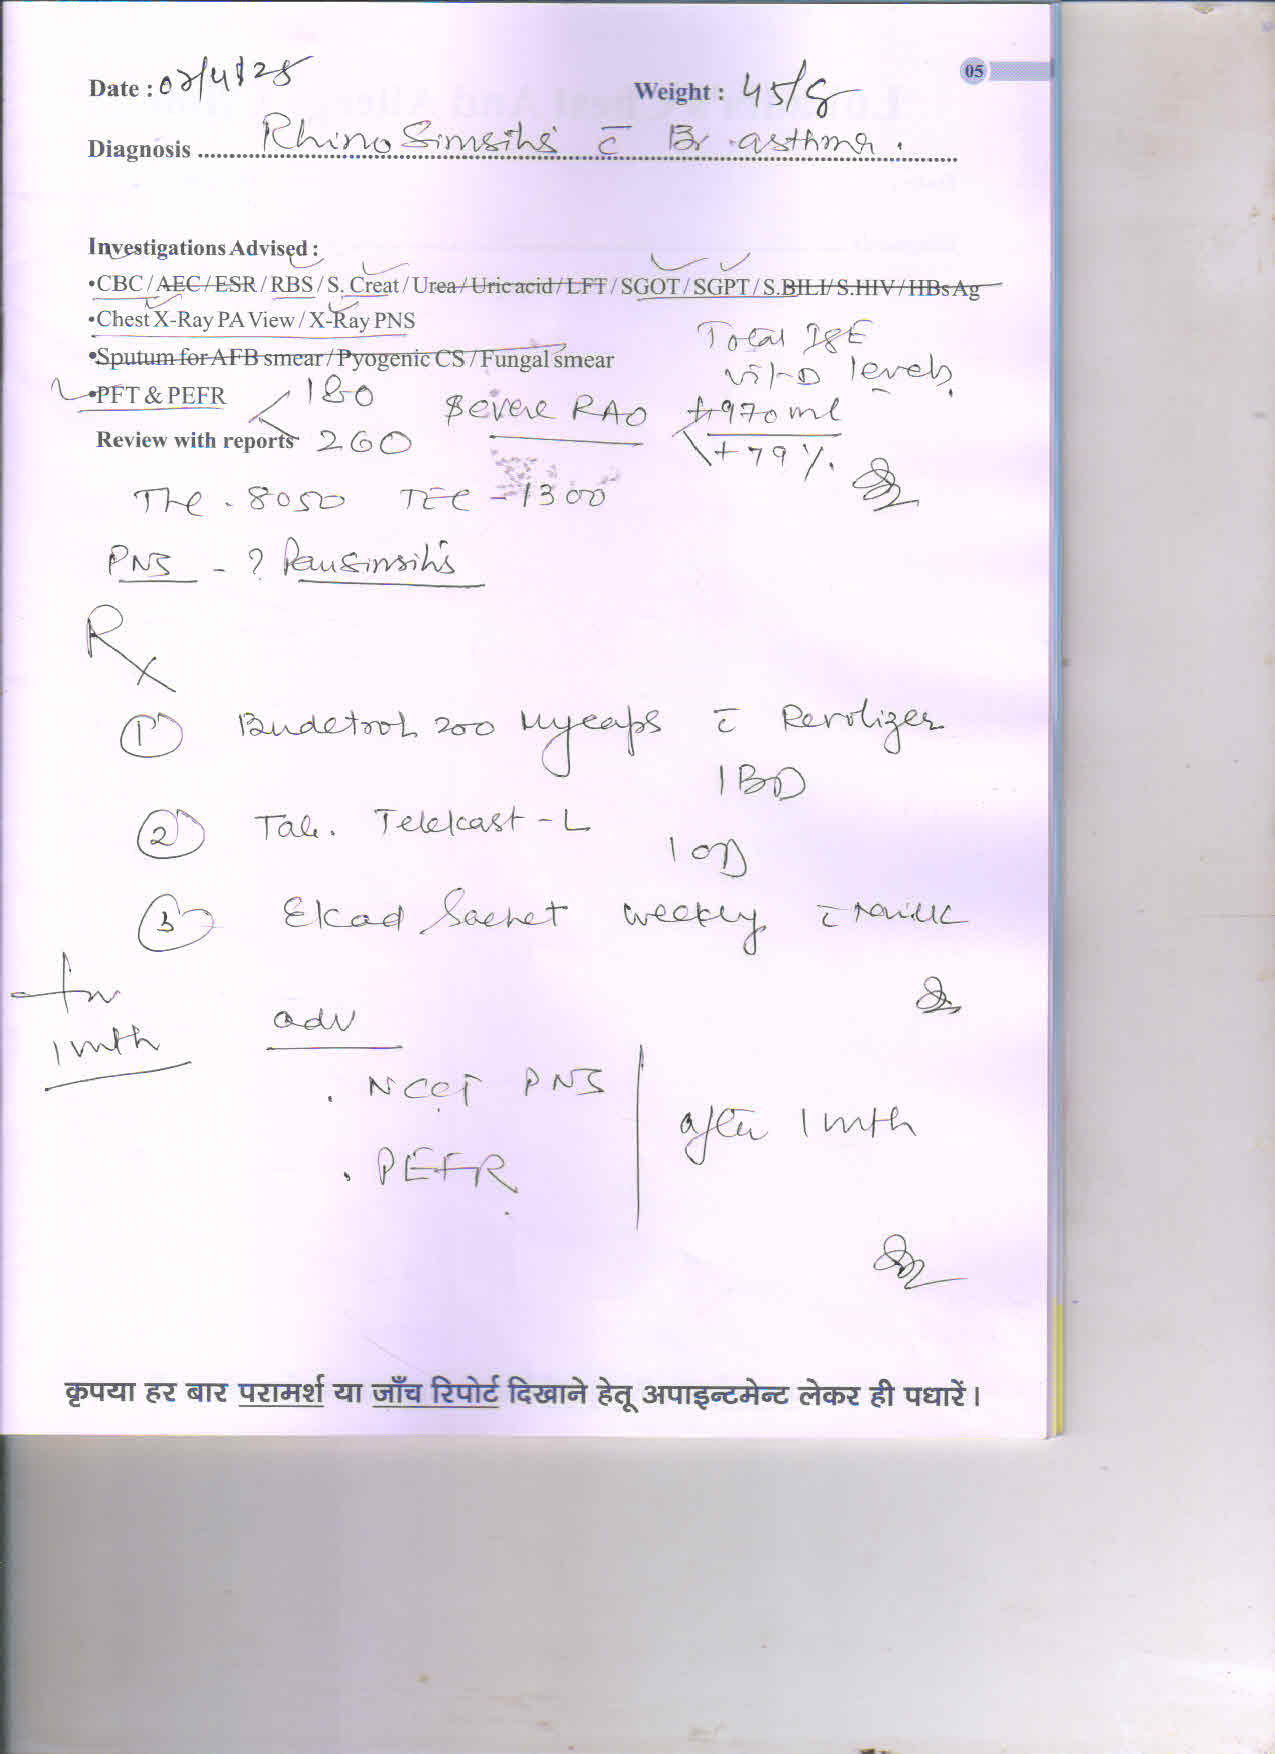 05
Date : 02/4/25 Weight : 45/
Diagnosis Rhino Sinusitis c̄ Br. asthma.
Investigations Advised :
•CBC / AEC / ESR / RBS / S. Creat / Urea / Uric acid / LFT / SGOT / SGPT / S.BILI / S.HIV / HBsAg
•Chest X-Ray PA View / X-Ray PNS
Total IgE
•Sputum for AFB smear / Pyogenic CS / Fungal smear
vit-D levels
•PFT & PEFR 180 Severe RAO +970 ml
Review with reports 260 +79 %.
TLC - 8050 TEC - 1300
PNS - ? Pansinusitis
Rx
1 Budetrol 200 c̄ Revolizer
1 BD
2 Tab. Telekast - L
1 OD
3 Ekad Sachet weekly c̄ milk
for
1 mth
adv
. NCCT PNS
after 1 mth
. PEFR
कृपया हर बार परामर्श या जाँच रिपोर्ट दिखाने हेतू अपाइन्टमेन्ट लेकर ही पधारें।